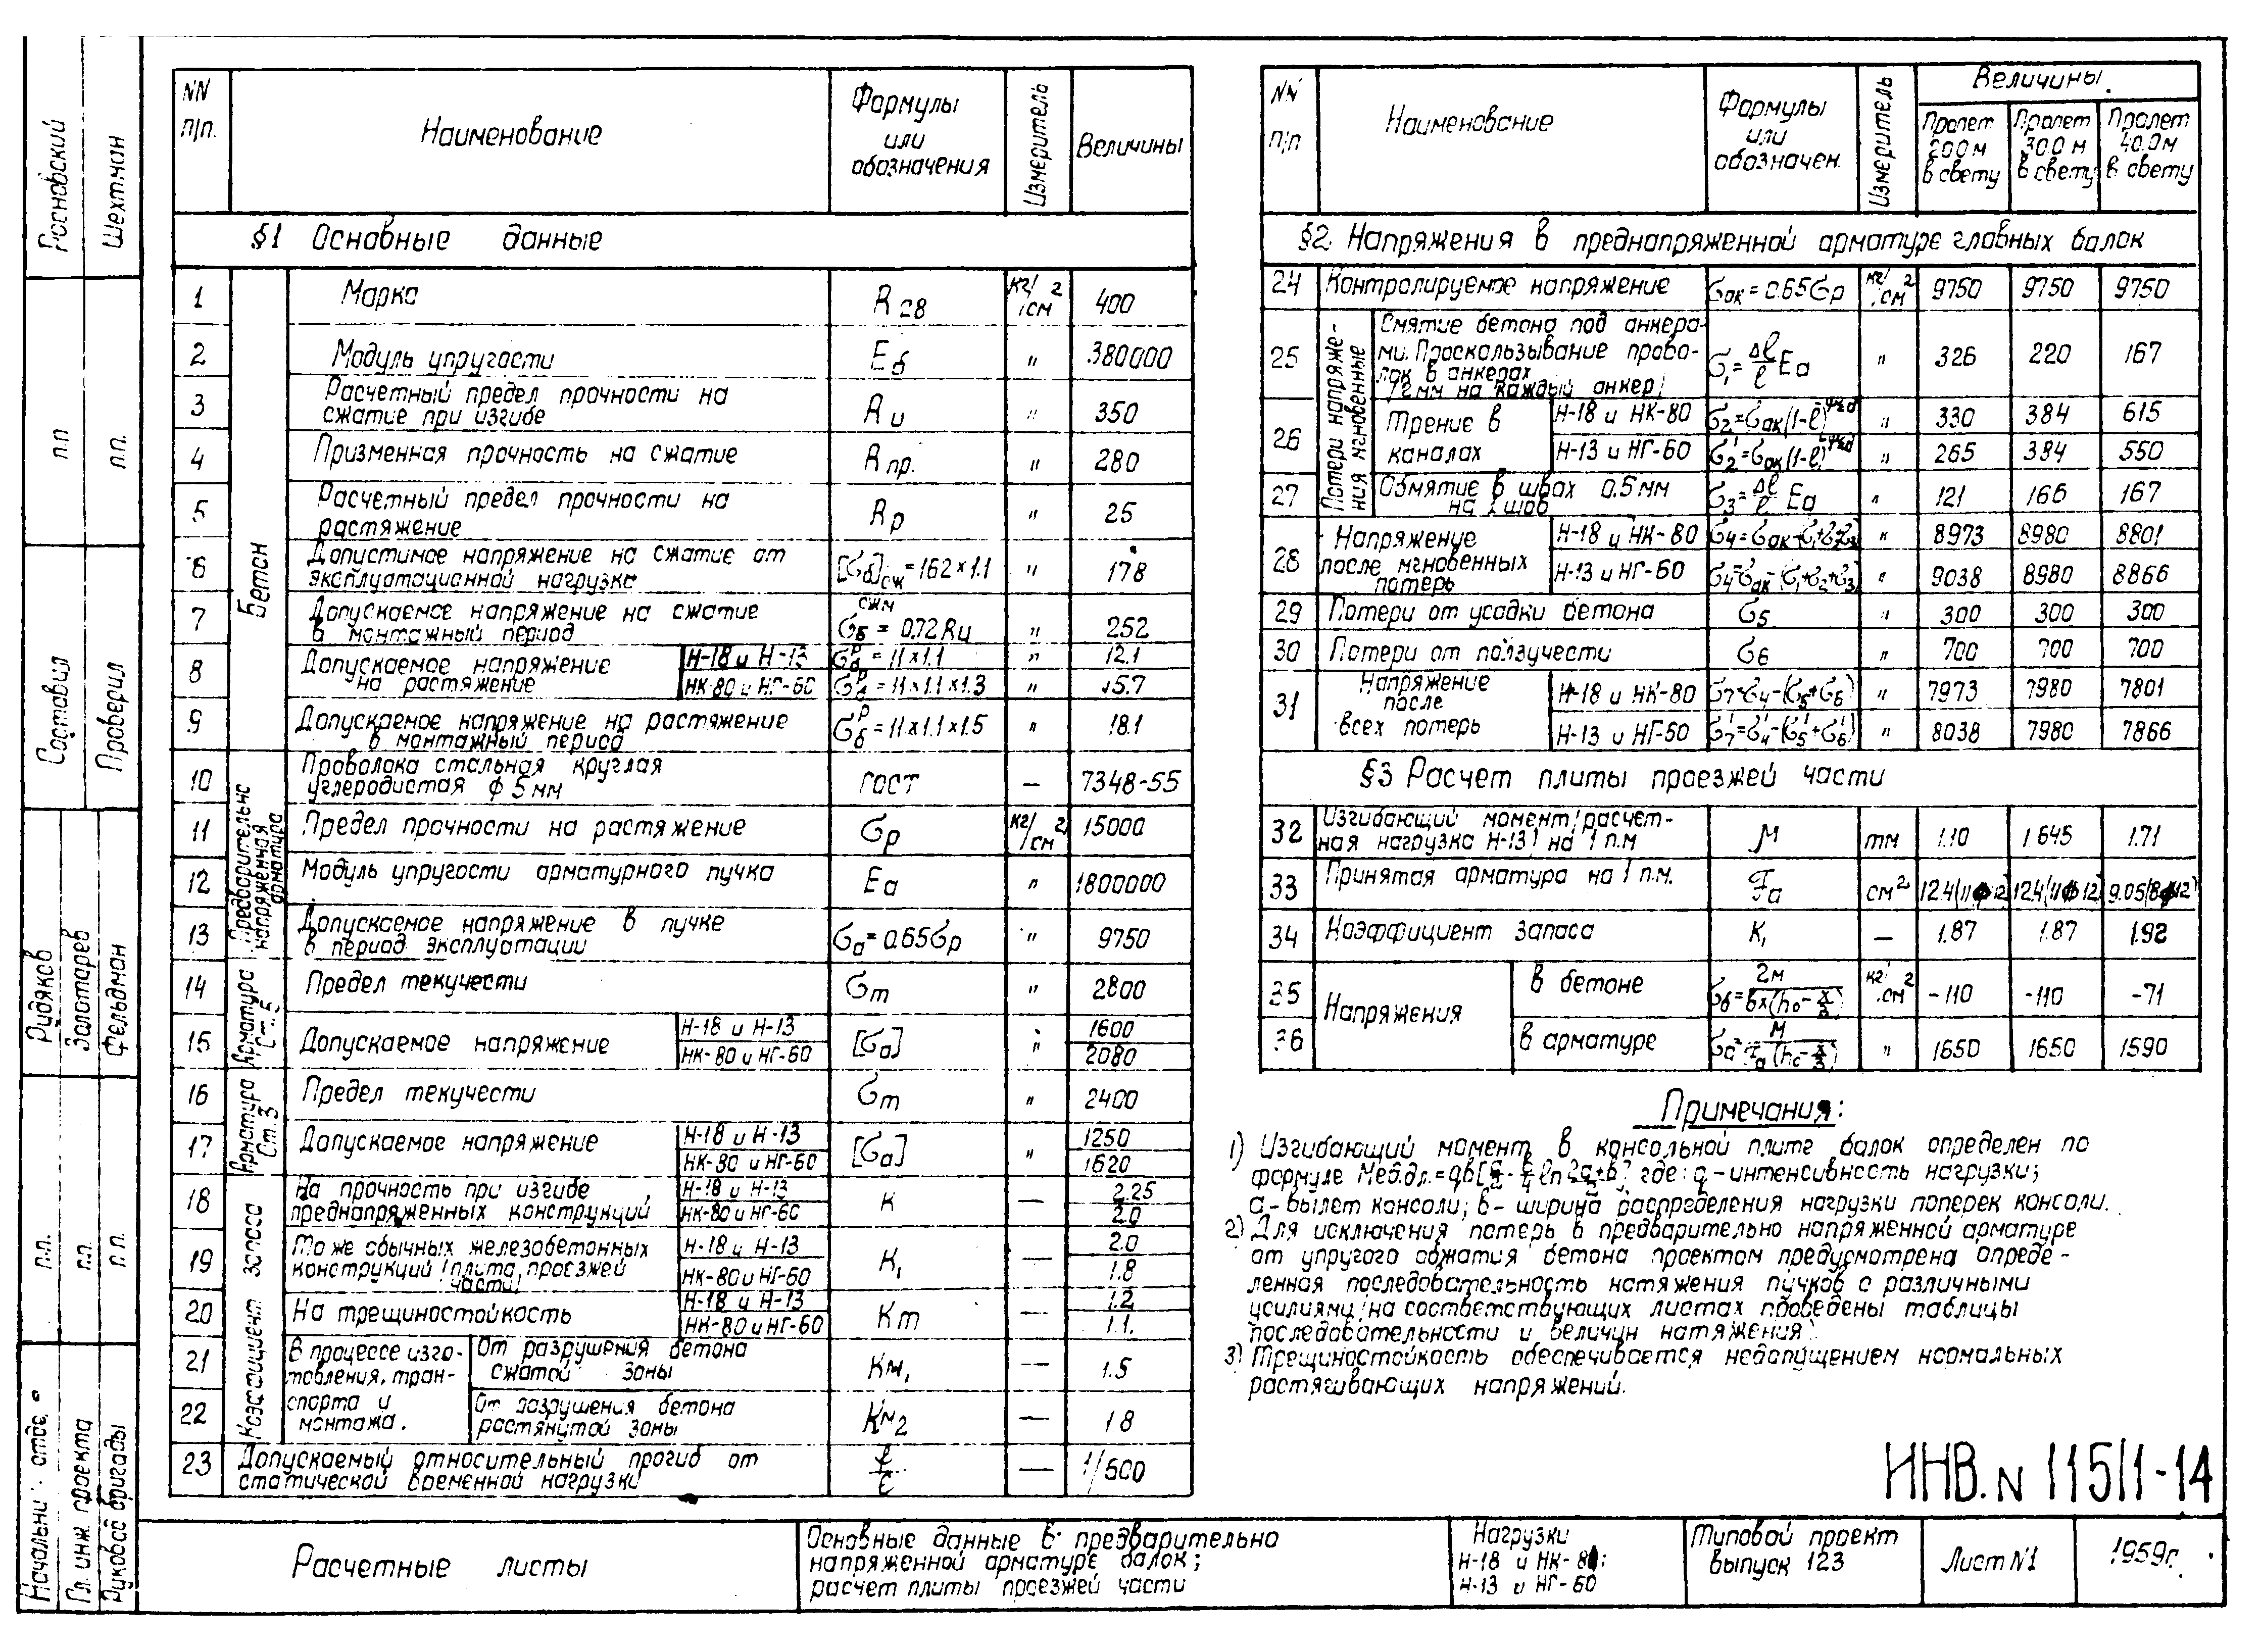 NN п/п. Наименование Формулы или обозначения Измеритель Величины
§1 Основные данные
Бетон
1 Марка R28 кг/см² 400
2 Модуль упругости Eб " 380000
3 Расчетный предел прочности на сжатие при изгибе Rи " 350
4 Призменная прочность на сжатие Rпр. " 280
5 Расчетный предел прочности на растяжение Rр " 25
6 Допустимое напряжение на сжатие от эксплуатационной нагрузки [σб]сж = 162×1.1 " 178
7 Допускаемое напряжение на сжатие в монтажный период σб сжм = 0.72Rи " 252
8 Допускаемое напряжение на растяжение Н-18 и Н-13 σбᵖ = 11×1.1 " 12.1
НК-80 и НГ-60 σбᵖ = 11×1.1×1.3 " 15.7
9 Допускаемое напряжение на растяжение в монтажный период σбᵖ = 11×1.1×1.5 " 18.1
Предварительно напряженная арматура
10 Проволока стальная круглая углеродистая ф 5мм ГОСТ — 7348-55
11 Предел прочности на растяжение σр кг/см² 15000
12 Модуль упругости арматурного пучка Eа " 1800000
13 Допускаемое напряжение в пучке в период эксплуатации σа = 0.65σр " 9750
Арматура Ст.5
14 Предел текучести σт " 2800
15 Допускаемое напряжение Н-18 и Н-13 [σа] " 1600
НК-80 и НГ-60 " 2080
Арматура Ст.3
16 Предел текучести σт " 2400
17 Допускаемое напряжение Н-18 и Н-13 [σа] " 1250
НК-80 и НГ-60 1620
Коэффициент запаса
18 На прочность при изгибе преднапряженных конструкций Н-18 и Н-13 К — 2.25
НК-80 и НГ-60 2.0
19 То же обычных железобетонных конструкций (плита проезжей части) Н-18 и Н-13 К₁ — 2.0
НК-80 и НГ-60 1.8
20 На трещиностойкость Н-18 и Н-13 Кт — 1.2
НК-80 и НГ-60 1.1.
В процессе изготовления, транспорта и монтажа.
21 От разрушения бетона сжатой зоны Км₁ — 1.5
22 От разрушения бетона растянутой зоны Км₂ — 1.8
23 Допускаемый относительный прогиб от статической временной нагрузки f/ℓ — 1/600
NN п/п Наименование Формулы или обозначен. Измеритель Величины.
Пролет 20.0м в свету Пролет 30.0м в свету Пролет 40.0м в свету
§2. Напряжения в преднапряженной арматуре главных балок
24 Контролируемое напряжение σак = 0.65σр кг/см² 9750 9750 9750
Потери напряжения мгновенные
25 Смятие бетона под анкерами. Проскальзывание проволок в анкерах /2мм на каждый анкер/ σ₁ = Δℓ/ℓ Eа " 326 220 167
26 Трение в каналах Н-18 и НК-80 σ₂ = σак(1-ℓ) " 330 384 615
Н-13 и НГ-60 σ₂' = σак(1-ℓ) " 265 384 550
27 Обмятие в швах 0.5мм на 1 шов σ₃ = Δℓ/ℓ Eа " 121 166 167
28 Напряжение после мгновенных потерь Н-18 и НК-80 σ₄ = σак-(σ₁+σ₂+σ₃) " 8973 8980 8801
Н-13 и НГ-60 σ₄' = σак-(σ₁+σ₂'+σ₃) " 9038 8980 8866
29 Потери от усадки бетона σ₅ " 300 300 300
30 Потери от ползучести σ₆ " 700 700 700
31 Напряжение после всех потерь Н-18 и НК-80 σ₇=σ₄-(σ₅+σ₆) " 7973 7980 7801
Н-13 и НГ-60 σ₇'=σ₄'-(σ₅'+σ₆') " 8038 7980 7866
§3 Расчет плиты проезжей части
32 Изгибающий момент /расчетная нагрузка Н-13/ на 1 п.м M тм 1.10 1.645 1.71
33 Принятая арматура на 1 п.м. Fа см² 12.4(11ф12) 12.4(11ф12) 9.05(8ф12)
34 Коэффициент запаса К₁ — 1.87 1.87 1.92
Напряжения
35 в бетоне σб = 2м/bx(h₀-x/3) кг/см² -110 -110 -71
36 в арматуре σа = М/Fа(h₀-x/3) " 1650 1650 1590
Примечания:
1) Изгибающий момент в консольной плите балок определен по
формуле где: q - интенсивность нагрузки;
а - вылет консоли; в - ширина распределения нагрузки поперек консоли.
2) Для исключения потерь в предварительно напряженной арматуре
от упругого обжатия бетона проектом предусмотрена опреде-
ленная последовательность натяжения пучков с различными
усилиями /на соответствующих листах приведены таблицы
последовательности и величин натяжения/.
3) Трещиностойкость обеспечивается недопущением нормальных
растягивающих напряжений.
ИНВ. N 11511-14
Расчетные листы
Основные данные в предварительно
напряженной арматуре балок;
расчет плиты проезжей части
Нагрузки
Н-18 и НК-80;
Н-13 и НГ-60
Типовой проект
выпуск 123
Лист N1
1959г.
Начальник отде.
Гл. инж. проекта
Руковод бригады
п.п.
п.п.
п.п.
Рудяков
Золотарев
Фельдман
Составил
Проверил
п.п
п.п.
Росновский
Шехтман